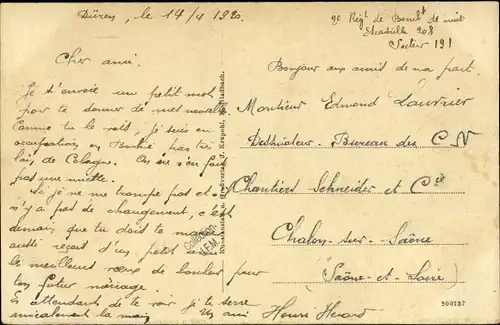 Düren, le 14/4 1920.
2e Régt de Bombt de nuit
Escadrille 208
Secteur 191
Cher ami.
Je t'envoie un petit mot
pour te donner de mes nouvelles
Comme tu le vois, je suis en
occupation en Bochie pas très
loin de Cologne. On ne s'en fait
pas une miette.
Si je ne me trompe pas et
n'y a pas de changement, c'est
demain que tu dois te marier
aussi reçois d'un petit ami
le meilleur vœux de bonheur pour
ton futur ménage.
En attendant de te voir je te serre
amicalement la main
Un ami Henri
Bonjour aux amis de ma part.
Monsieur Edmond
Dessinateur. Bureau des C N
Chantiers Schneider et Cie
Chalon-sur-Saône
(Saône-et-Loire)
Collection
J.F.M.
200137